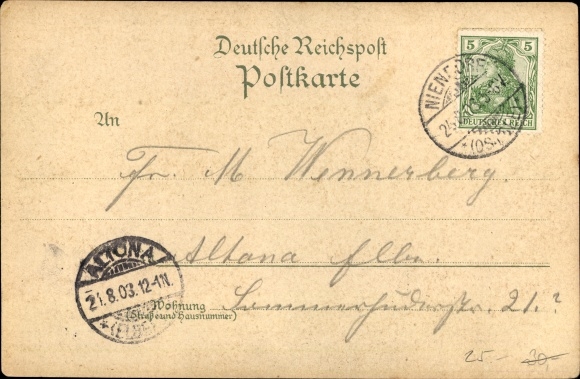 Deutsche Reichspost
Postkarte
5 5
DEUTSCHES REICH
NIENDORF
An
Fr. M. Wennerberg.
Altona Elbe.
ALTONA
21.8.03.12-1N.
*(ELBE)
Wohnung
(Straße und Hausnummer)
Sommerhuderstr. 21.?
25.- 30,-